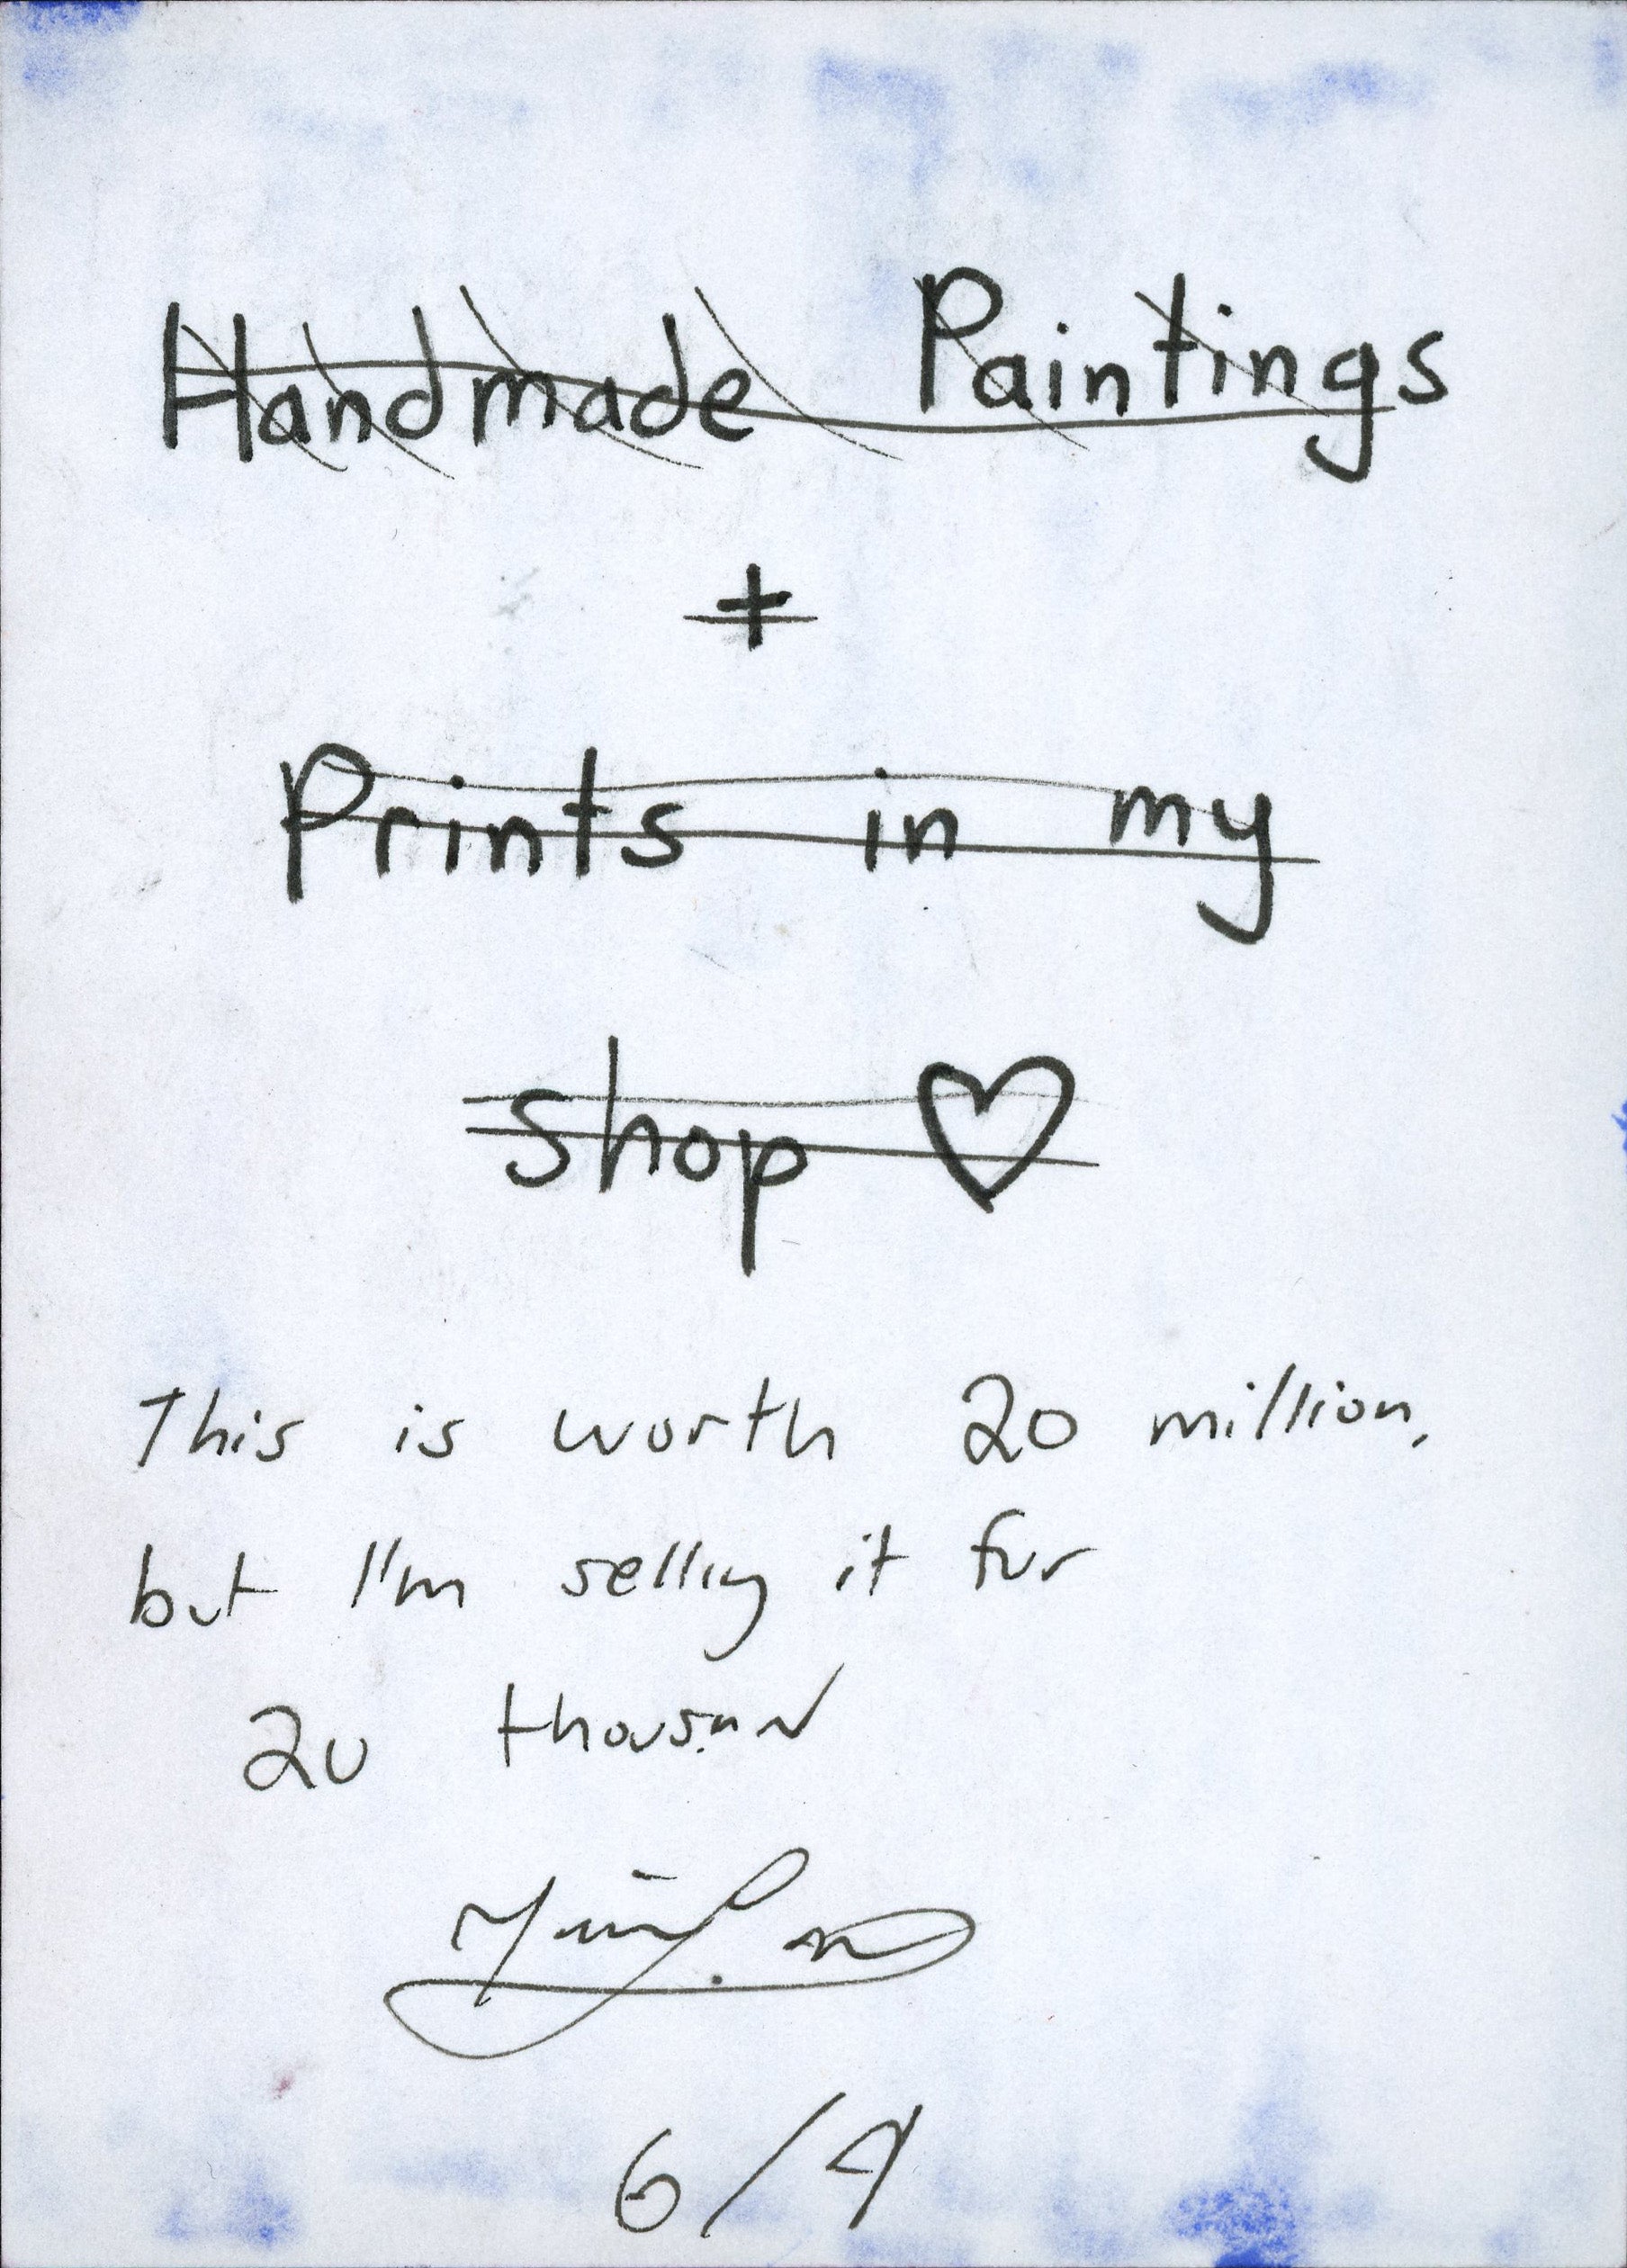 Handmade Paintings
+
Prints in my
shop ♡
This is worth 20 million,
but I'm selling it for
20 thousand
6/4